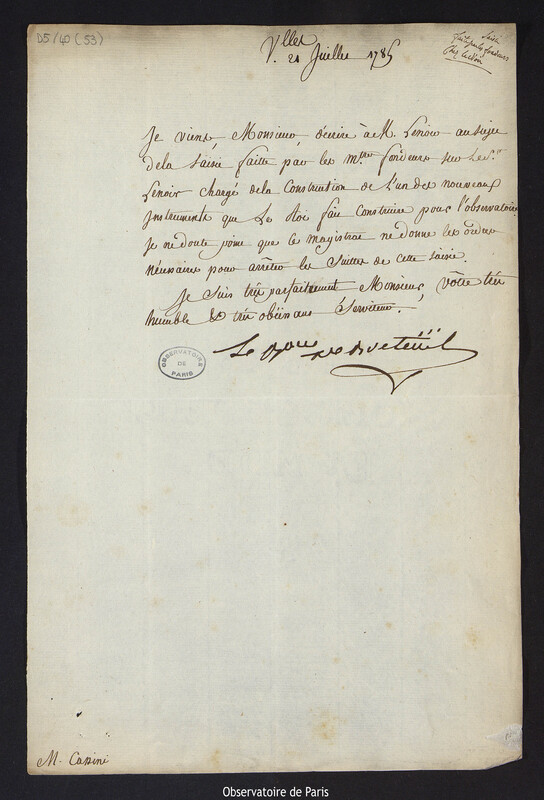 D5/40 (53)
Saisie
faite par les fondeurs
chez Lenoir
V.lles
V. 21 Juillet 1785
Je viens, Monsieur, d'écrire à M. Lenoir au sujet
dela Saisie faitte par les m.tres fondeurs sur Le S.r
Lenoir chargé dela Construction de L'un des nouveaux
Instruments que Le Roi fait Construire pour l'observatoire
Je ne doute point que ce magistrat ne donne les ordres
nécessaires pour arrêter les Suittes de cette saisie.
Je Suis très parfaitement Monsieur, vôtre très
humble & très obéissant Serviteur.
Le Bon de Breteüil
OBSERVATOIRE
DE
PARIS
M. Cassini
Observatoire de Paris